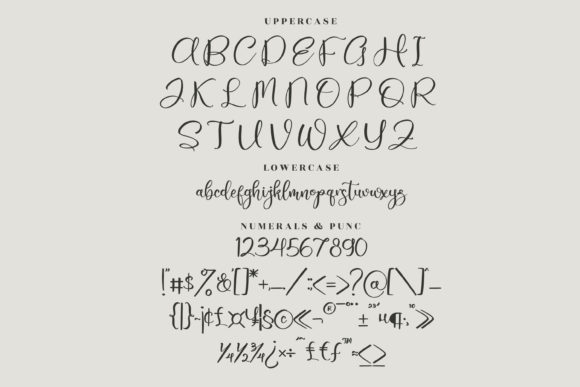 UPPERCASE
ABCDEFGHI
JKLMNOPQR
STUVWXYZ
LOWERCASE
abcdefghijklmnopqrstuvwxyz
NUMERALS & PUNC
1234567890
!"#$%&'[]*+,-./:;<=>?@[\]^_
{|}~¡¢£¤¥¦§©«¬®¯°±²³´µ¶·¸¹º»
¼½¾¿×÷ˆ˜£₤ƒ™≈≤≥